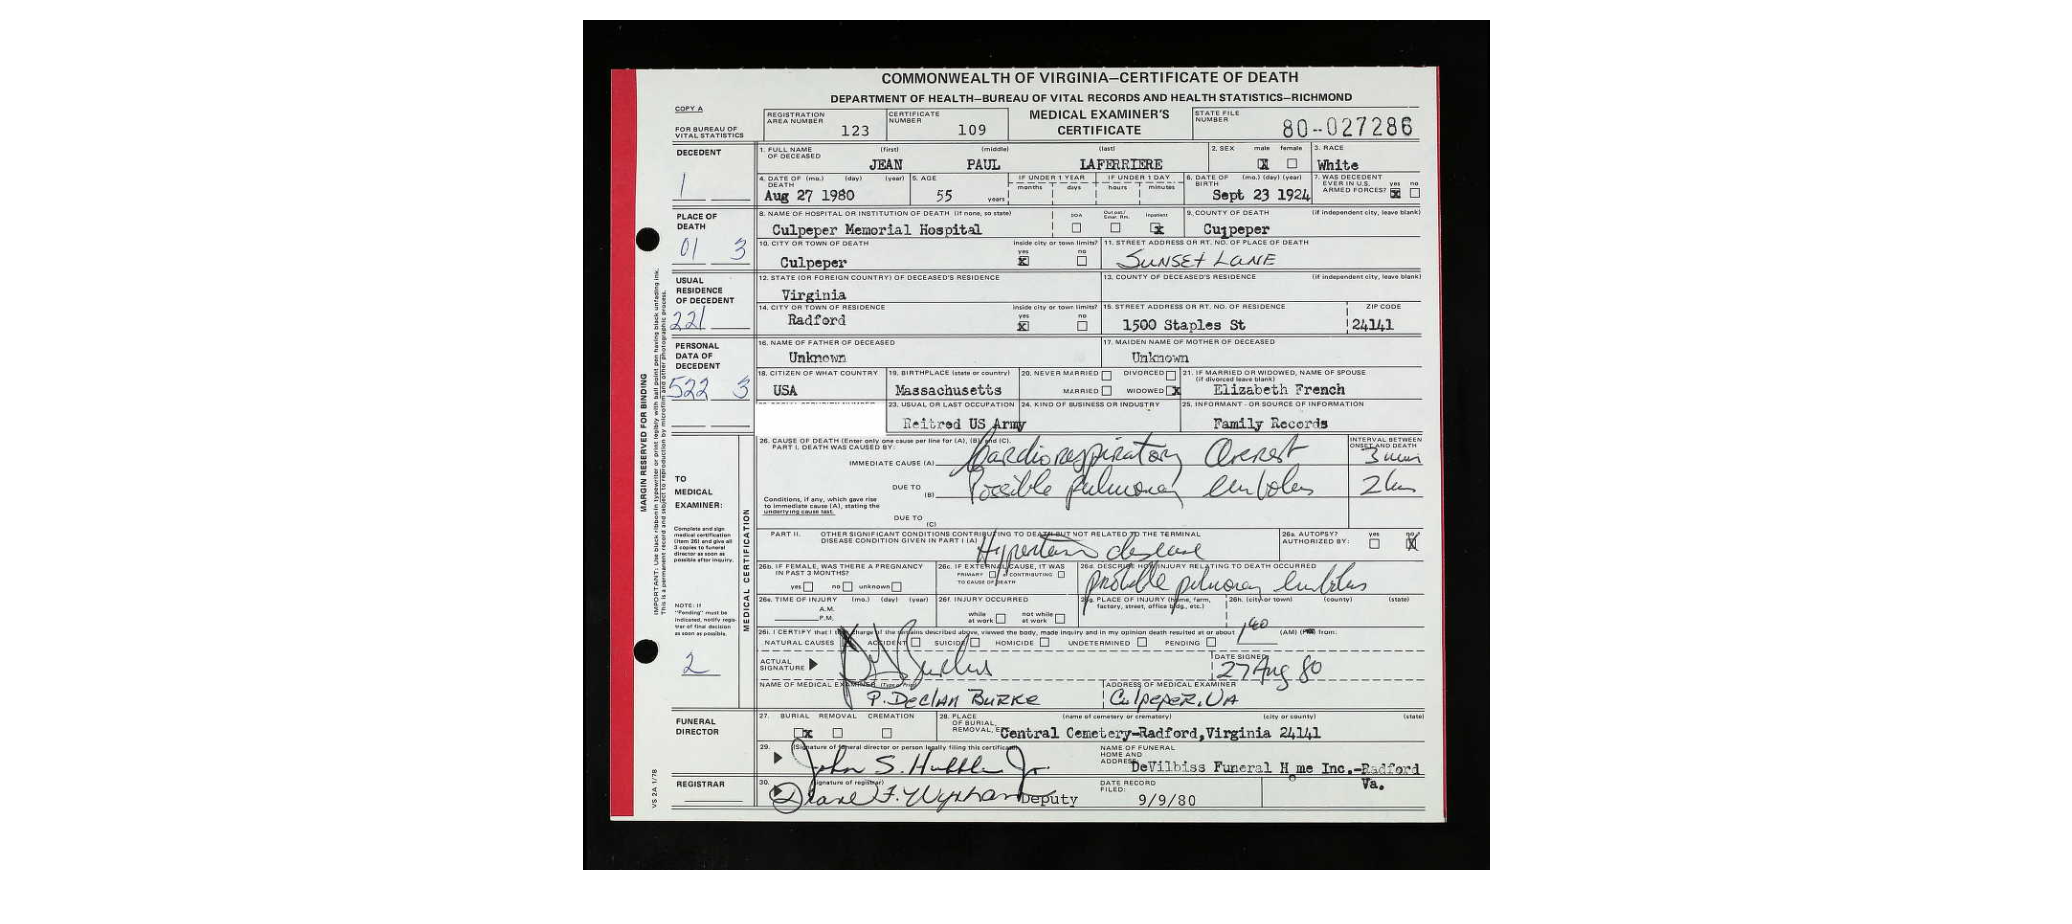 COMMONWEALTH OF VIRGINIA—CERTIFICATE OF DEATH
DEPARTMENT OF HEALTH—BUREAU OF VITAL RECORDS AND HEALTH STATISTICS—RICHMOND
COPY A
FOR BUREAU OF VITAL STATISTICS
REGISTRATION AREA NUMBER 123
CERTIFICATE NUMBER 109
MEDICAL EXAMINER'S CERTIFICATE
STATE FILE NUMBER 80-027286
DECEDENT
1
1. FULL NAME OF DECEASED (first) (middle) (last)
JEAN PAUL LAFERRIERE
2. SEX male female
X
3. RACE
White
4. DATE OF DEATH (mo.) (day) (year)
Aug 27 1980
5. AGE
55 years
IF UNDER 1 YEAR months days
IF UNDER 1 DAY hours minutes
6. DATE OF BIRTH (mo.) (day) (year)
Sept 23 1924
7. WAS DECEDENT EVER IN U.S. ARMED FORCES? yes no
X
PLACE OF DEATH
01 3
8. NAME OF HOSPITAL OR INSTITUTION OF DEATH (if none, so state)
Culpeper Memorial Hospital
DOA Out pat/ Emer. Rm. Inpatient
x
9. COUNTY OF DEATH (if independent city, leave blank)
Cu1peper
10. CITY OR TOWN OF DEATH
Culpeper
inside city or town limits? yes no
X
11. STREET ADDRESS OR RT. NO. OF PLACE OF DEATH
SUNSET LANE
USUAL RESIDENCE OF DECEDENT
221
12. STATE (OR FOREIGN COUNTRY) OF DECEASED'S RESIDENCE
Virginia
13. COUNTY OF DECEASED'S RESIDENCE (if independent city, leave blank)
14. CITY OR TOWN OF RESIDENCE
Radford
inside city or town limits? yes no
X
15. STREET ADDRESS OR RT. NO. OF RESIDENCE
1500 Staples St
ZIP CODE
24141
PERSONAL DATA OF DECEDENT
522 3
16. NAME OF FATHER OF DECEASED
Unknown
17. MAIDEN NAME OF MOTHER OF DECEASED
Unknown
18. CITIZEN OF WHAT COUNTRY
USA
19. BIRTHPLACE (state or country)
Massachusetts
20. NEVER MARRIED DIVORCED
MARRIED WIDOWED x
21. IF MARRIED OR WIDOWED, NAME OF SPOUSE (if divorced leave blank)
Elizabeth French
23. USUAL OR LAST OCCUPATION
Reitred US Army
24. KIND OF BUSINESS OR INDUSTRY
25. INFORMANT - OR SOURCE OF INFORMATION
Family Records
TO MEDICAL EXAMINER:
Complete and sign medical certification (item 26) and give all 3 copies to funeral director as soon as possible after inquiry.
NOTE: If "Pending" must be indicated, notify registrar of final decision as soon as possible.
2
MEDICAL CERTIFICATION
26. CAUSE OF DEATH (Enter only one cause per line for (A), (B), and (C).
PART I. DEATH WAS CAUSED BY:
INTERVAL BETWEEN ONSET AND DEATH
IMMEDIATE CAUSE (A) Cardiorespiratory Arrest 3 min
DUE TO (B) Possible pulmonary embolus
Conditions, if any, which gave rise to immediate cause (A), stating the underlying cause last.
DUE TO (C)
PART II. OTHER SIGNIFICANT CONDITIONS CONTRIBUTING TO DEATH BUT NOT RELATED TO THE TERMINAL DISEASE CONDITION GIVEN IN PART I (A)
disease
26a. AUTOPSY? AUTHORIZED BY: yes no
X
26b. IF FEMALE, WAS THERE A PREGNANCY IN PAST 3 MONTHS?
yes no unknown
26c. IF EXTERNAL CAUSE, IT WAS
PRIMARY CONTRIBUTING
TO CAUSE OF DEATH
26d. DESCRIBE HOW INJURY RELATING TO DEATH OCCURRED
probable pulmonary embolus
26e. TIME OF INJURY (mo.) (day) (year)
A.M.
P.M.
26f. INJURY OCCURRED
while at work not while at work
26g. PLACE OF INJURY (home, farm, factory, street, office bldg., etc.)
26h. (city or town) (county) (state)
26i. I CERTIFY that I took charge of the remains described above, viewed the body, made inquiry and in my opinion death resulted at or about (AM) (PM) from:
NATURAL CAUSES ACCIDENT SUICIDE HOMICIDE UNDETERMINED PENDING
ACTUAL SIGNATURE
DATE SIGNED
27 Aug 80
NAME OF MEDICAL EXAMINER (Type or Print)
P. DECLAN BURKE
ADDRESS OF MEDICAL EXAMINER
CULPEPER, VA
FUNERAL DIRECTOR
27. BURIAL REMOVAL CREMATION
x
28. PLACE OF BURIAL, REMOVAL, (name of cemetery or crematory) (city or county) (state)
Central Cemetery-Radford,Virginia 24141
29. (Signature of funeral director or person legally filing this certificate)
John S. Jr.
NAME OF FUNERAL HOME AND ADDRESS
DeVilbiss Funeral Home Inc.-Radford
Va.
REGISTRAR
30. (signature of registrar)
Diane F. Deputy
DATE RECORD FILED:
9/9/80
MARGIN RESERVED FOR BINDING
IMPORTANT: Use black ribbon in typewriter or print legibly with ball point pen having black unfading ink.
This is a permanent record and subject to reproduction by microfilm and other photographic process.
VS 2A 1/78